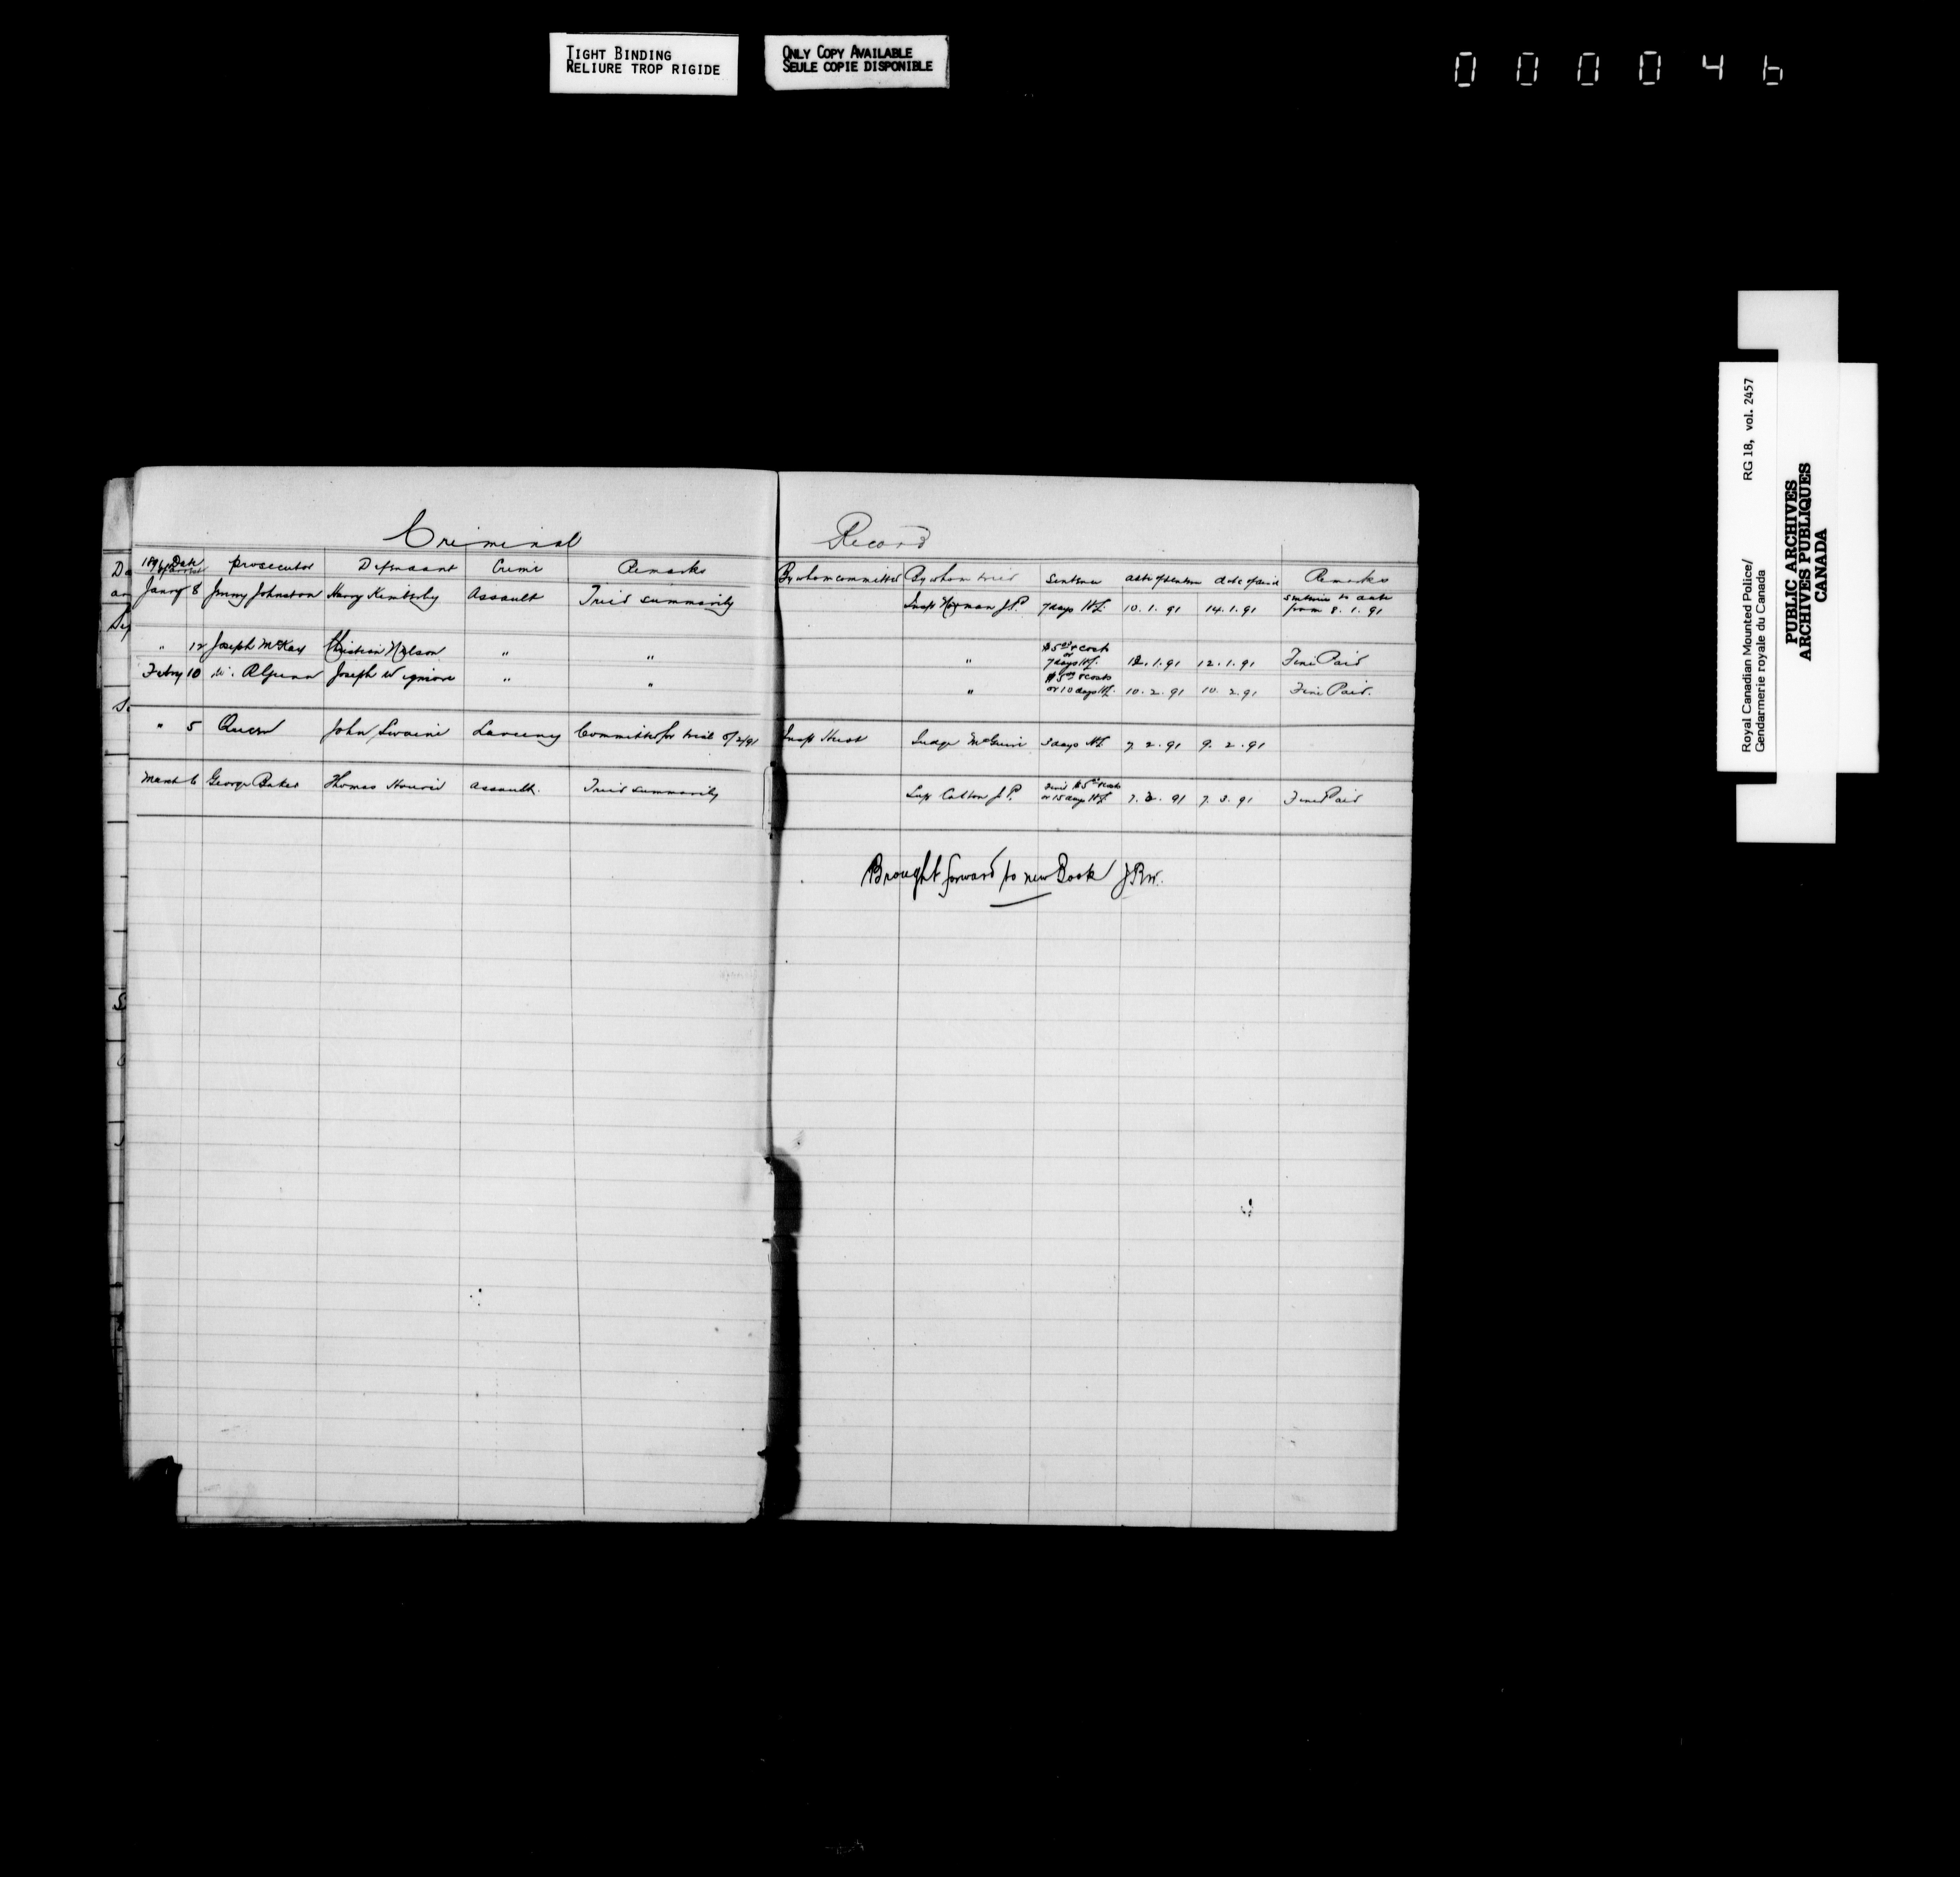 TIGHT BINDING
RELIURE TROP RIGIDE
ONLY COPY AVAILABLE
SEULE COPIE DISPONIBLE
000046
Criminal Record
1891 Date of arrest Prosecutor Defendant Crime Remarks By whom committed By whom tried Sentence date of sentence date of Remarks
Janry 8 Jimmy Johnston Harry Kimberley Assault Tried summarily Insp Norman J.P. 7 days H.L. 10.1.91 14.1.91 Sentence to date from 8.1.91
" 12 Joseph McKay Christian Nelson " " " $5 & costs or 7 days H.L. 12.1.91 12.1.91 Fine Paid
Febry 10 Joseph Wigmore " " " $5 & costs or 10 days H.L. 10.2.91 10.2.91 Fine Paid.
" 5 Queen John Swaine Larceny Committed for trial 5/2/91 Insp Huot Judge McGuire 3 days H.L. 7.2.91 9.2.91
March 6 George Baker Thomas Hourie Assault. Tried summarily Supt Cotton J.P. Fine $5 & costs or 15 days H.L. 7.3.91 7.3.91 Fine Paid
Brought forward to new Book
Royal Canadian Mounted Police/
Gendarmerie royale du Canada
RG 18, vol. 2457
PUBLIC ARCHIVES
ARCHIVES PUBLIQUES
CANADA